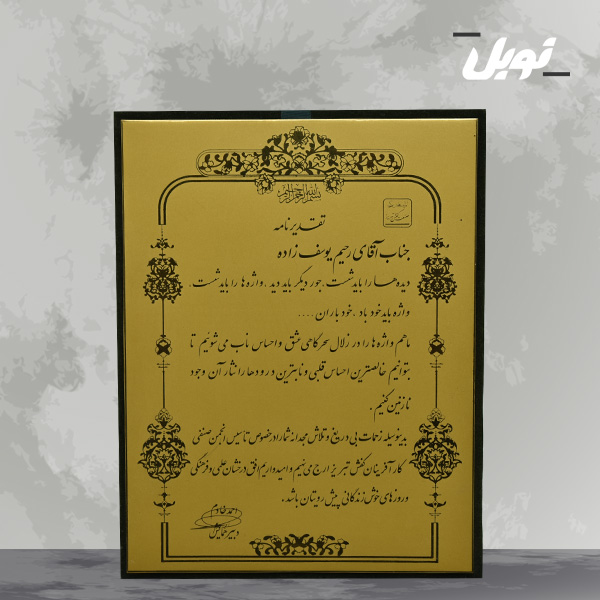 نوبل
بسم الله الرحمن الرحیم
تقدیرنامه
جناب آقای رحیم یوسف زاده
دیده ها را باید شست، جور دیگر باید دید، واژه ها را باید شست،
واژه باید خود باد، خود باران....
ما هم واژه ها را در زلال سحرگاهی عشق و احساس ناب می شوئیم تا
بتوانیم خالصترین احساس قلبی و نابترین درودها را نثار آن وجود
نازنین کنیم.
بدینوسیله زحمات بی دریغ و تلاش مجدانه شما را در خصوص تاسیس انجمن صنفی
کارآفرینان کفش تبریز ارج می نهیم و امیدواریم افق درخشان علمی و فرهنگی
و روزهای خوش زندگانی پیش رویتان باشد.
احمد
دبیر همایش